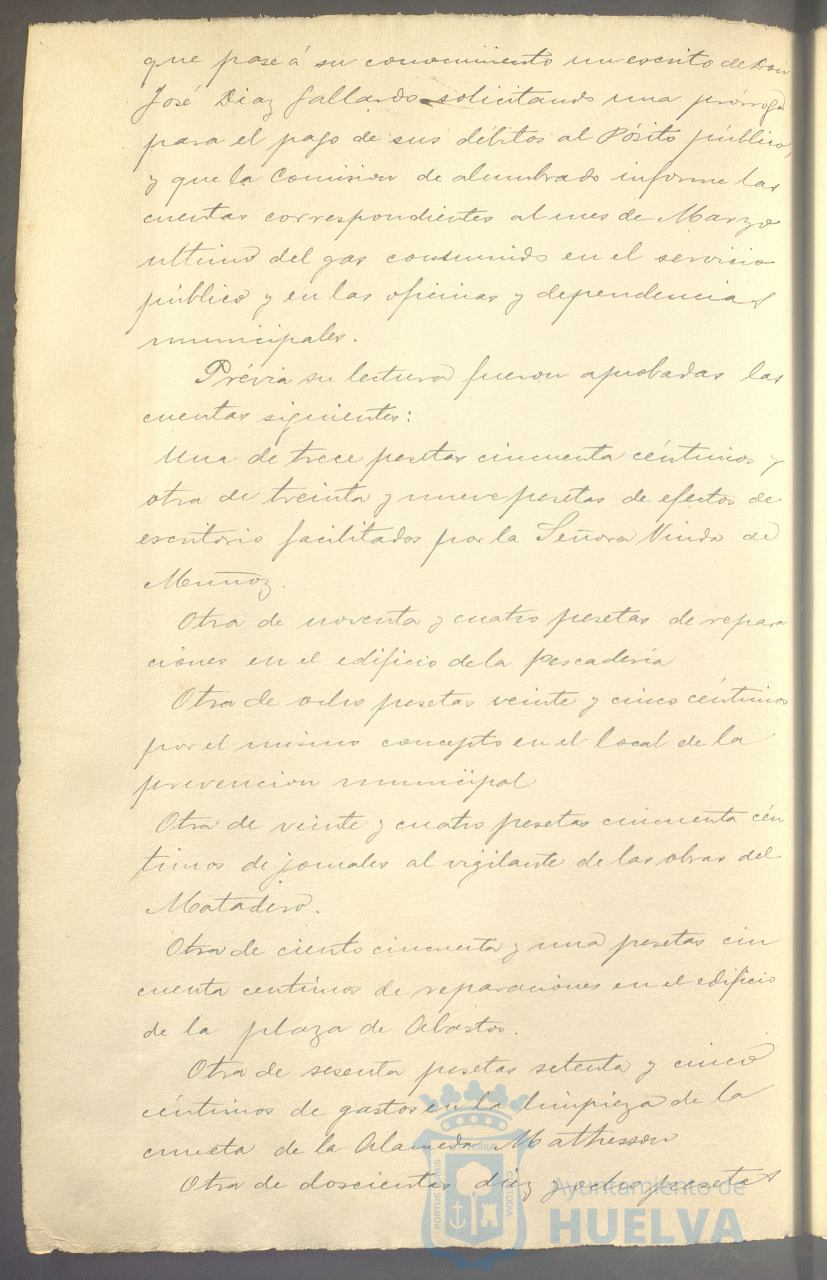 que pase á su conocimiento un escrito de Don
José Diaz Gallardo solicitando una prórroga
para el pago de sus débitos al Pósito público,
y que la Comision de alumbrado informe las
cuentas correspondientes al mes de Marzo
ultimo del gas consumido en el servicio
público y en las oficinas y dependencias
municipales.
Prévia su lectura fueron aprobadas las
cuentas siguientes:
Una de trece pesetas cincuenta céntimos y
otra de treinta y nueve pesetas de efectos de
escritorio facilitados por la Señora Viuda de
Muñoz.
Otra de noventa y cuatro pesetas de repara
ciones en el edificio de la pescadería
Otra de ocho pesetas veinte y cinco céntimos
por el mismo concepto en el local de la
prevencion municipal
Otra de veinte y cuatro pesetas cincuenta cén
timos de jornales al vigilante de las obras del
Matadero.
Otra de ciento cincuenta y una pesetas cin
cuenta centimos de reparaciones en el edificio
de la plaza de Abastos.
Otra de sesenta pesetas setenta y cinco
céntimos de gastos en la limpieza de la
cuneta de la Alameda Mathesson
Otra de doscientas diez y ocho pesetas
PORTUS MARIS ET TERRAE CUSTODIA
Ayuntamiento de
HUELVA